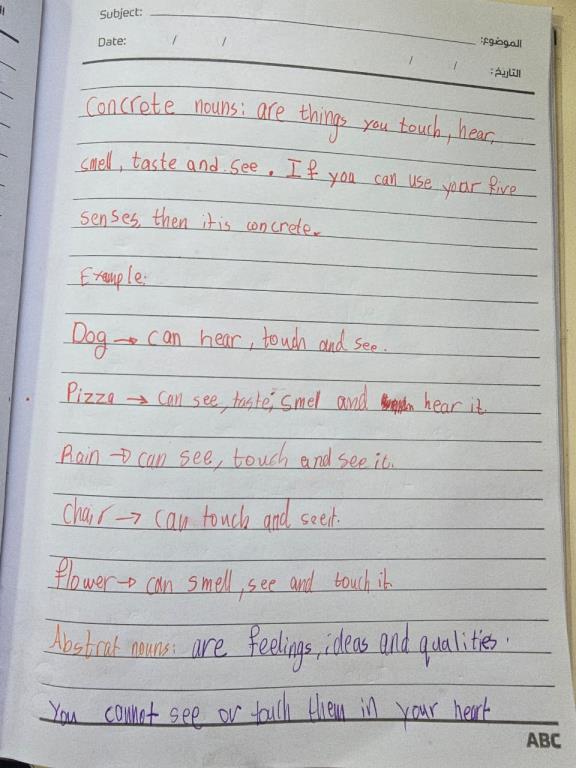 Subject:
الموضوع:
Date: / /
/ / التاريخ:
Concrete nouns: are things you touch, hear,
smell, taste and see. If you can use your five
senses, then it is concrete.
Example:
Dog → can hear, touch and see.
Pizza → can see, taste, smel and hear it.
Rain → can see, touch and see it.
Chair → can touch and see it.
flower → can smell, see and touch it
Abstrat nouns: are feelings, ideas and qualities.
You cannot see or touch them in your heart
ABC